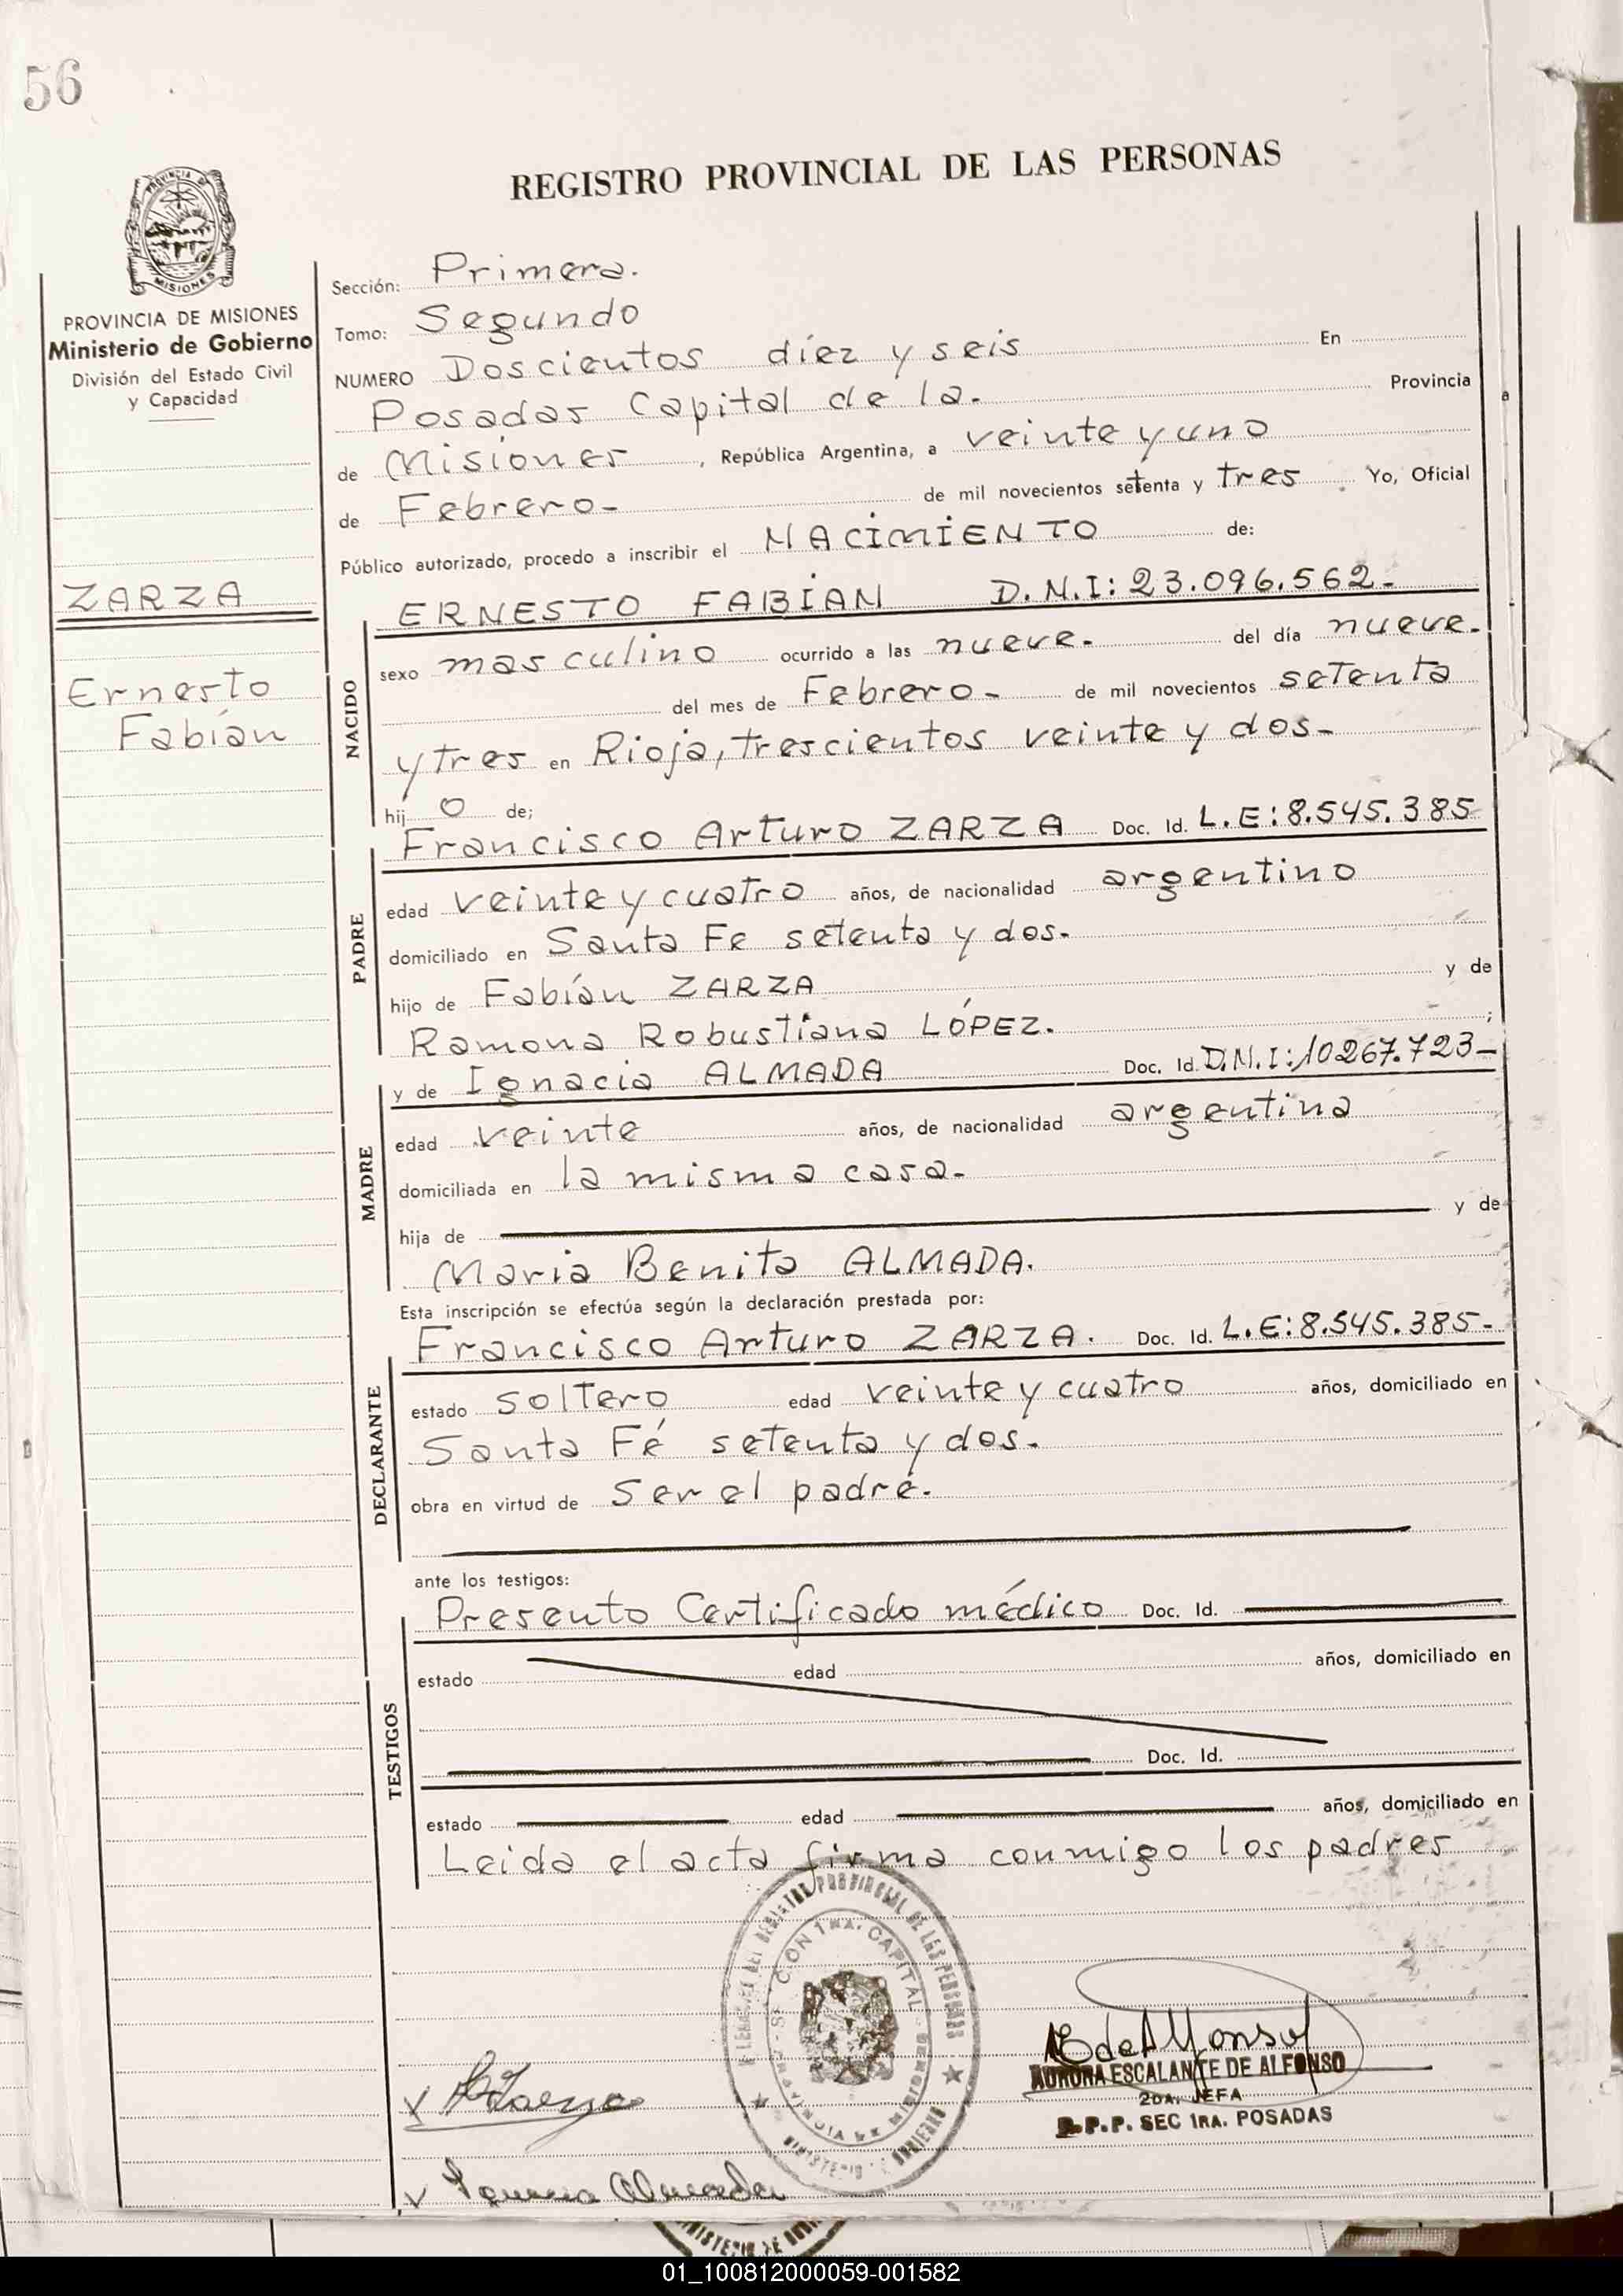 56
REGISTRO PROVINCIAL DE LAS PERSONAS
PROVINCIA DE MISIONES
Ministerio de Gobierno
División del Estado Civil
y Capacidad
ZARZA
Ernesto
Fabián
Sección: Primera.
Tomo: Segundo
NUMERO Doscientos diez y seis En
Posadas Capital de la. Provincia
de Misiones, República Argentina, a veinte y uno
de Febrero- de mil novecientos setenta y tres. Yo, Oficial
Público autorizado, procedo a inscribir el NACIMIENTO de:
ERNESTO FABIAN D.N.I: 23.096.562-
NACIDO
sexo masculino ocurrido a las nueve. del día nueve.
del mes de Febrero- de mil novecientos setenta
y tres en Rioja, trescientos veinte y dos-
hijo de;
Francisco Arturo ZARZA Doc. Id. L.E: 8.545.385
PADRE
edad veinte y cuatro años, de nacionalidad argentino
domiciliado en Santa Fe setenta y dos.
hijo de Fabián ZARZA y de
Ramona Robustiana LÓPEZ. ;
y de Ignacia ALMADA Doc. Id. D.N.I: 10267.723-
MADRE
edad veinte años, de nacionalidad argentina
domiciliada en la misma casa-
hija de y de
Maria Benita ALMADA.
Esta inscripción se efectúa según la declaración prestada por:
Francisco Arturo ZARZA. Doc. Id. L.E: 8.545.385-
DECLARANTE
estado soltero edad veinte y cuatro años, domiciliado en
Santa Fé setenta y dos.
obra en virtud de Ser el padre.
ante los testigos:
Presento Certificado médico Doc. Id.
TESTIGOS
estado edad años, domiciliado en
Doc. Id.
estado edad años, domiciliado en
Leida el acta firma conmigo los padres
REGISTRO PROVINCIAL DE LAS PERSONAS
CAPITAL
AEdeAlfonso
AURORA ESCALANTE DE ALFONSO
2DA. JEFA
R.P.P. SEC 1RA. POSADAS
Almada
01_100812000059-001582